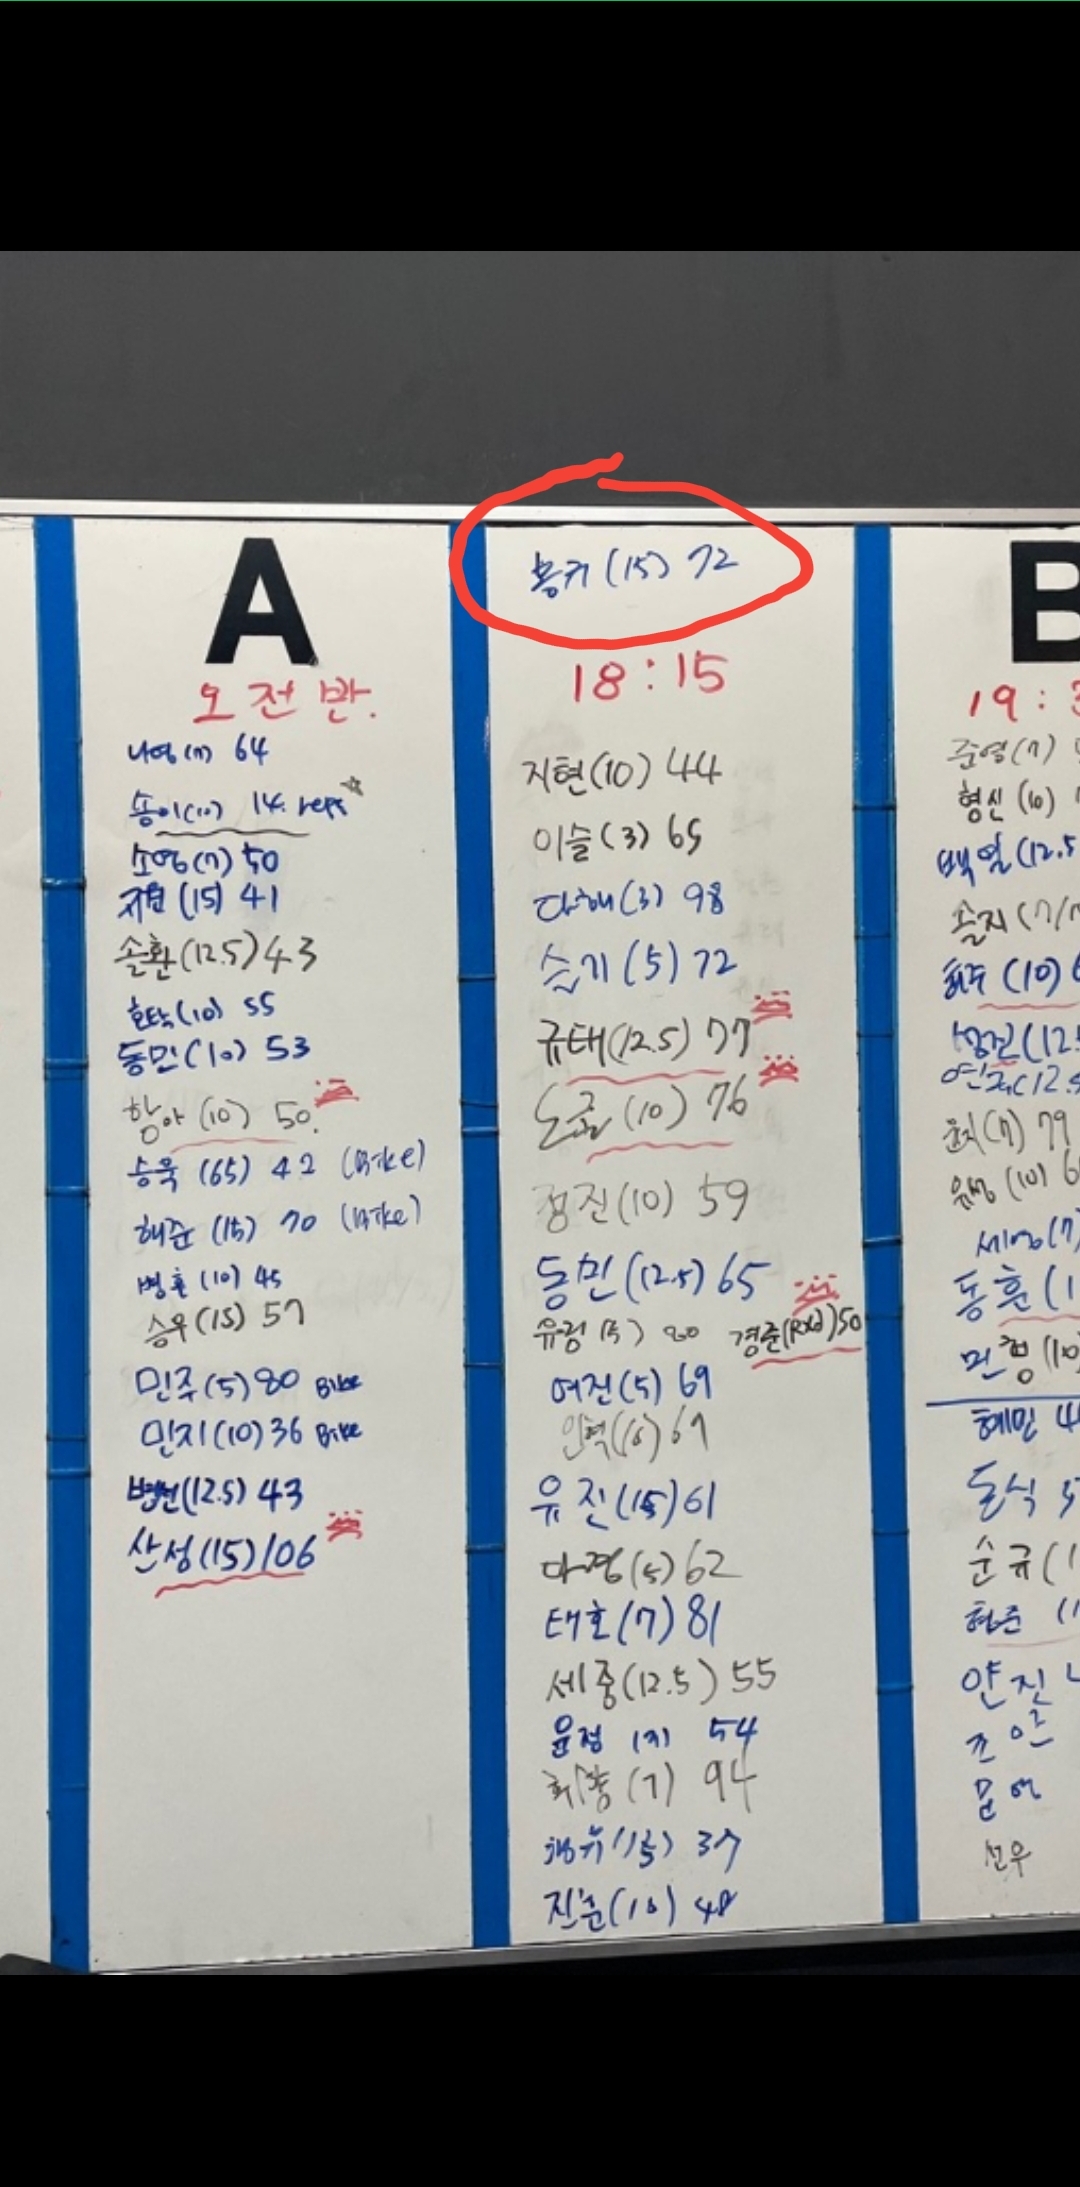 A
오전반.
나영(7) 64
송이(10) 14. reps
소영(7) 50
지원(15) 41
솔환(12.5) 43
호탁(10) 55
동민(10) 53
항아(10) 50.
승욱(65) 42 (Bike)
해준(15) 70 (Bike)
병훈(10) 45
승우(15) 57
민주(5) 80 Bike
민지(10) 36 Bike
병헌(12.5) 43
산성(15) 106
(15) 72
18:15
지현(10) 44
이슬(3) 65
다해(3) 98
슬기(5) 72
규태(12.5) 77
도균(10) 76
정진(10) 59
동민(12.5) 65
유정(5) 80 경준(RXD) 50
여진(5) 69
인혁(10) 67
유진(15) 61
다경(5) 62
태호(7) 81
세종(12.5) 55
윤정 54
(7) 94
37
진준(10) 48
B
19:3
준영(7)
형신(10)
백열(12.5
솔지(7/
(10) 6
성진(12.5
(12.5
윤지(7) 79
유성(10) 6
세영(7)
동훈(1
민경(10
혜민 4
돈식 5
순규(1
현준 (1
얀진
조은
문영
선우